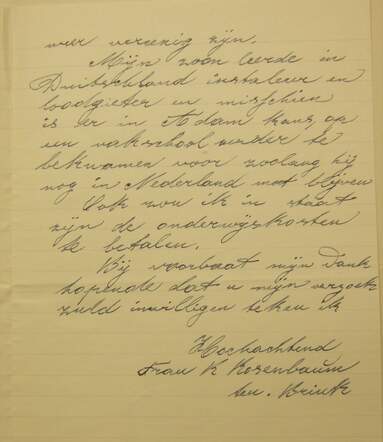 weer vereenig zijn.
Mijn zoon leerde in
Duitschland instaleur en
loodgieter en misschien
is er in Adam kans op
een vakschool verder te
bekwamen voor zoolang hij
nog in Nederland moet blijven
Ook zou ik in staat
zijn de onderwijskosten
te betalen.
Bij voorbaat mijn dank
hopende dat u mijn verzoek
zuld inwilligen teken ik
Hochachtend
Frau K Rosenbaum
ten. Brink